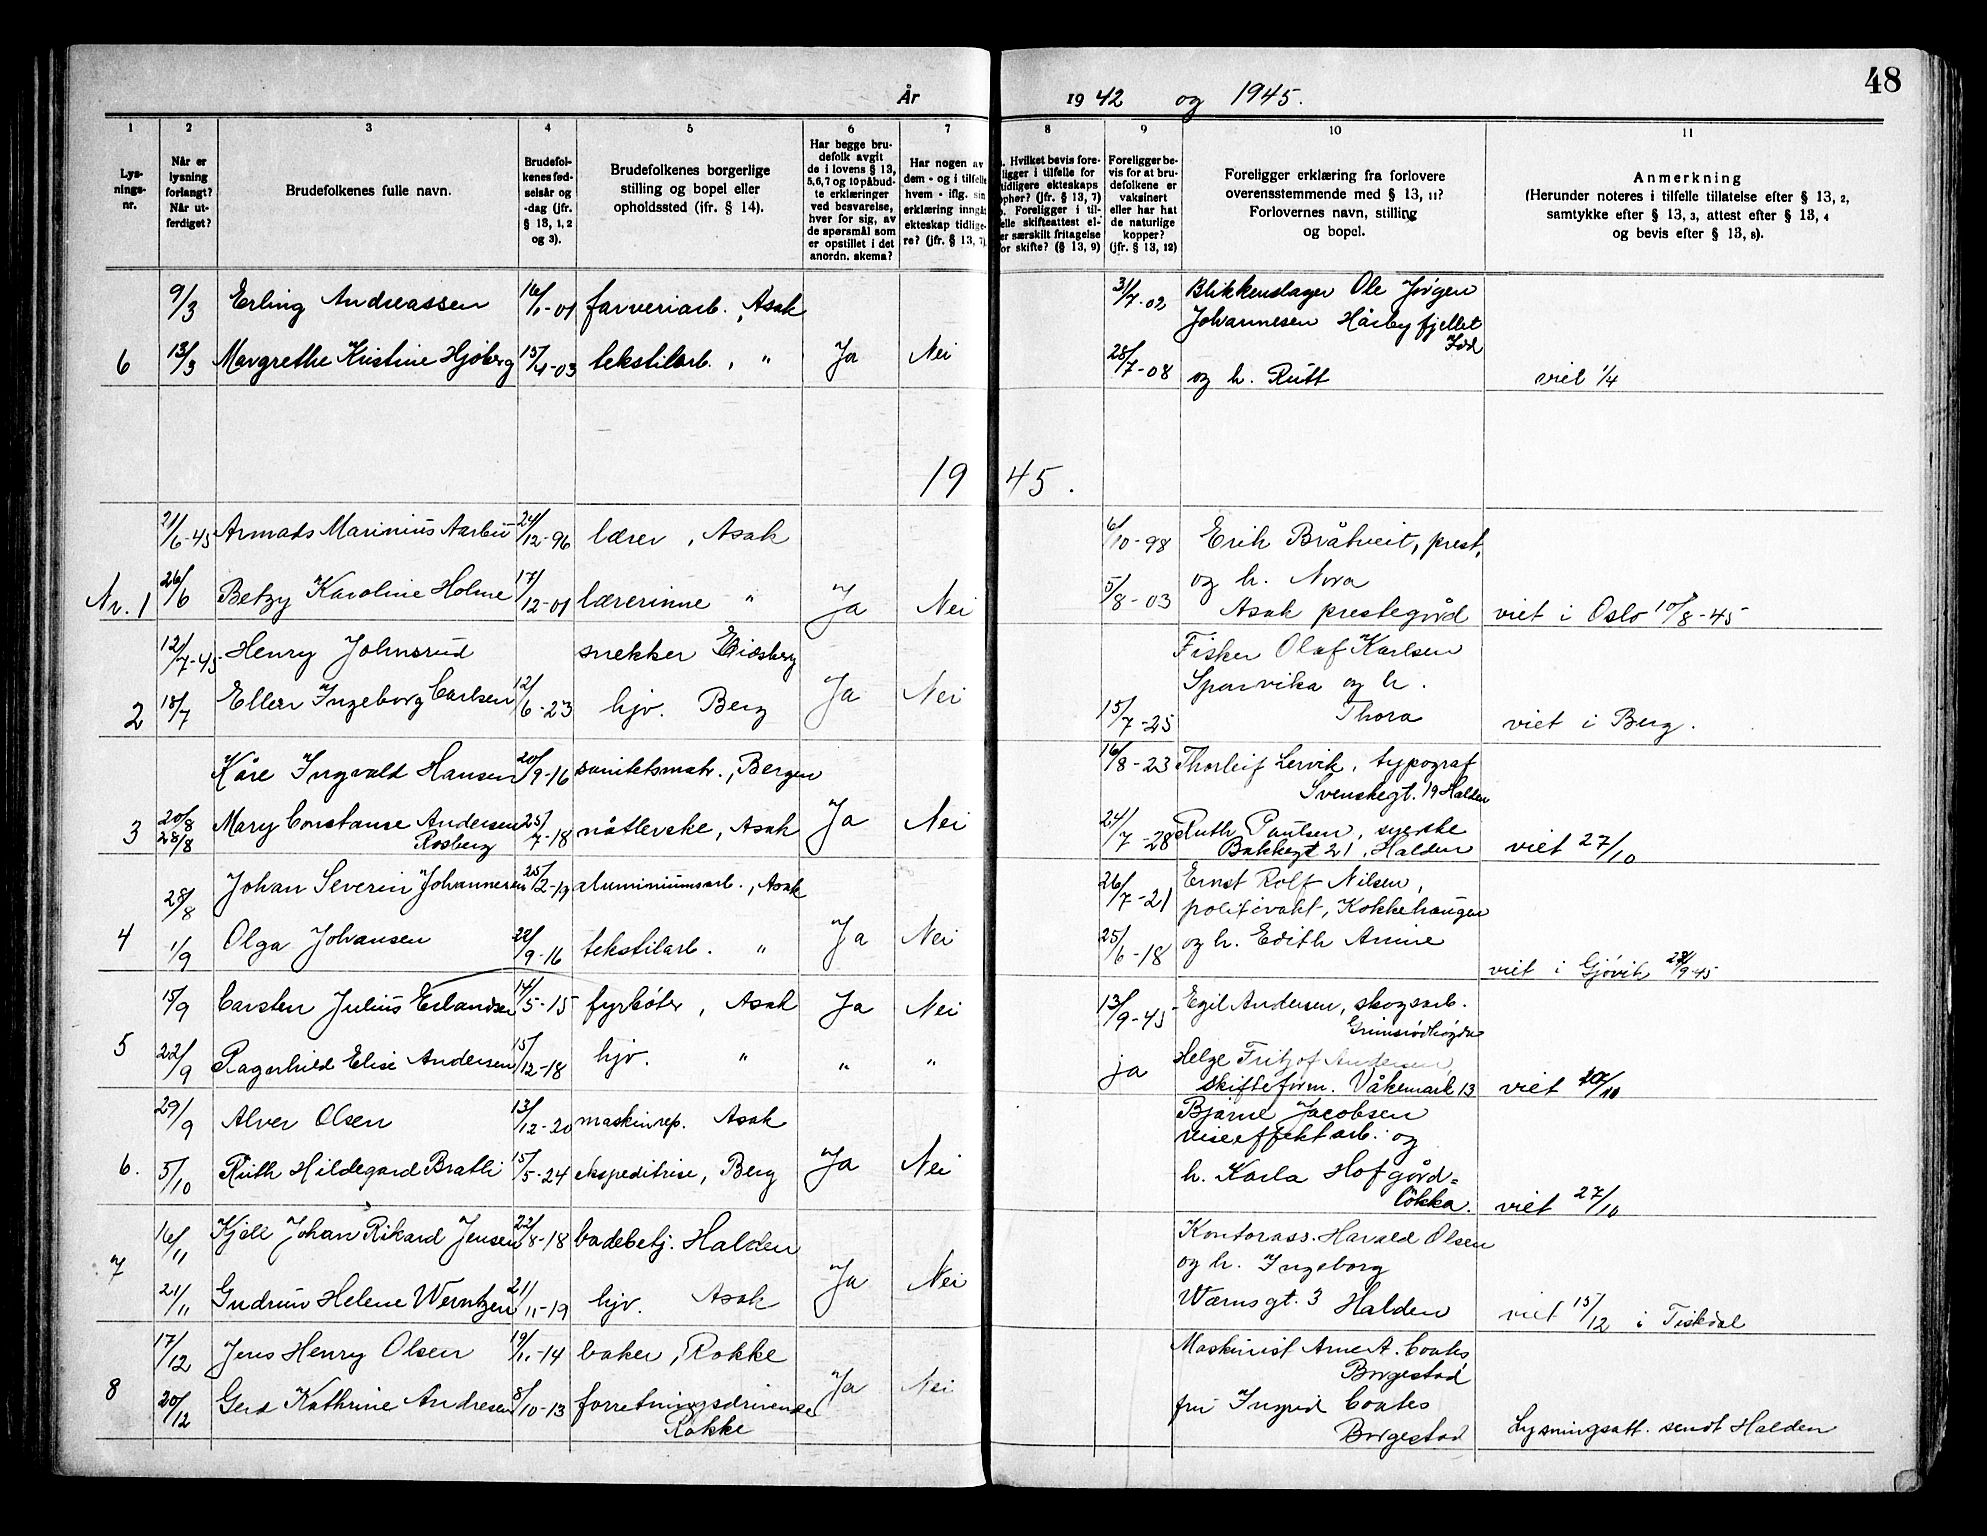 48
År 1942 og 1945.
1 2 3 4 5 6 7 8 9 10 11
Lys-
nings-
nr.
Når er
lysning
forlangt?
Når ut-
ferdiget?
Brudefolkenes fulle navn.
Brudefol-
kenes fød-
selsår og
-dag (jfr.
§ 13, 1, 2
og 3).
Brudefolkenes borgerlige
stilling og bopel eller
opholdssted (ifr. § 14).
Har begge bru-
defolk avgit
de i lovens § 13,
5,6,7 og 10 påbud-
te erklæringer
ved besvarelse,
hver for sig, av
de spørsmål som
er opstillet i det
anordn. skema?
Har nogen av
dem - og i tilfelle
hvem - iflg. sin
erklæring inngå
ekteskap tidlige-
re? (jfr. § 13, 7)
. Hvilket bevis fore-
ligger i tilfelle for
tidligere ekteskaps
ophør? (jfr. § 13, 7)
. Foreligger i til-
elle skifteattest el-
er særskilt fritagelse
for skifte? (§ 13, 9)
Foreligger be-
vis for at bru-
defolkene er
vaksinert
eller har hat
de naturlige
kopper?
(jfr. § 13, 12)
Foreligger erklæring fra forlovere
overensstemmende med § 13, 11?
Forlovernes navn, stilling
og bopel.
Anmerkning
(Herunder noteres i tilfelle tillatelse efter § 13, 2,
samtykke efter § 13, 3, attest efter § 13, 4
og bevis efter § 13, 8).
9/3 Erling Andreassen 16/1-01 farveriarb., Asak 31/7-02 Blikkenslager Ole Jørgen
Johannesen Hårbyfjellet
Idd
6 13/3 Margrethe Kristine Hjøberg 15/4-03 tekstilarb., " Ja Nei 28/7-08 og h. Rutt viet 1/4
1945.
21/6-45 Armads Marinius Aarbu 24/12-96 lærer, Asak 6/10-98 Erik Bråtveit, prest,
Nr. 1 26/6 Betzy Karoline Holme 17/12-01 lærerinne " Ja Nei 5/8-03 og h. Nora
Asak prestegård viet i Oslo 10/8-45
12/7-45 Henry Johnsrud snekker Eidsberg Fisker Olaf Karlsen
Sponvika og h.
2 18/7 Ellen Ingeborg Carlsen 12/6-23 hjv. Berg Ja Nei 15/7-25 Thora viet i Berg.
Kåre Ingvald Hansen 20/9-16 sanitetsmatr., Bergen 16/8-23 Thorleif Lervik, typograf
Svenskegt. 19 Halden
3 20/8 28/8 Mary Constanse Andersen 25/7-18 nåtlerske, Asak Ja Nei 24/7-28 Ruth Paulsen, syerske
Rosberg Bakkegt 21, Halden viet 27/10
28/8 Johan Severin Johannesen 25/2-19 aluminiumsarb., Asak 26/7-21 Ernst Rolf Nilsen,
politivakt, Kokkehaugen
4 1/9 Olga Johansen 22/9-16 tekstilarb. " Ja Nei 25/6-18 og h. Edith Amine
viet i Gjøvik 22/9-45
15/9 Carsten Julius Erlandsen 14/5-15 fyrbøter, Asak Ja Nei 13/9-45 Egil Andersen, skogsarb.
Grimsrødhøgda
5 22/9 Ragnhild Elise Andersen 15/12-18 hjv. " " " ja Helge Fritjof Andersen,
skifteform. Våkemark 13 viet 20/10
29/9 Alver Olsen 13/12-20 maskinrep. Asak Bjarne Jacobsen
og
6. 5/10 Ruth Hildegard Bratli 15/5-24 ekspeditrise, Berg Ja Nei h. Karla Hofgård-
løkka. viet 27/10
16/11 Kjell Johan Rikard Jensen 22/8-18 badebetj. Halden Kontorass. Harald Olsen
og h. Ingeborg
7 21/11 Gudrun Helene Werntzen 21/11-19 hjv. Asak Ja Nei Wærnsgt. 3 Halden viet 15/12 i Tistedal
17/12 Jens Henry Olsen 19/11-14 baker, Rokke Maskinist Arne A. Coates
Borgestad
8 20/12 Gerd Kathrine Andresen 8/10-13 forretningsdrivende Ja Nei fru Ingrid Coates
Rokke Borgestad Lysningsatt. sendt Halden